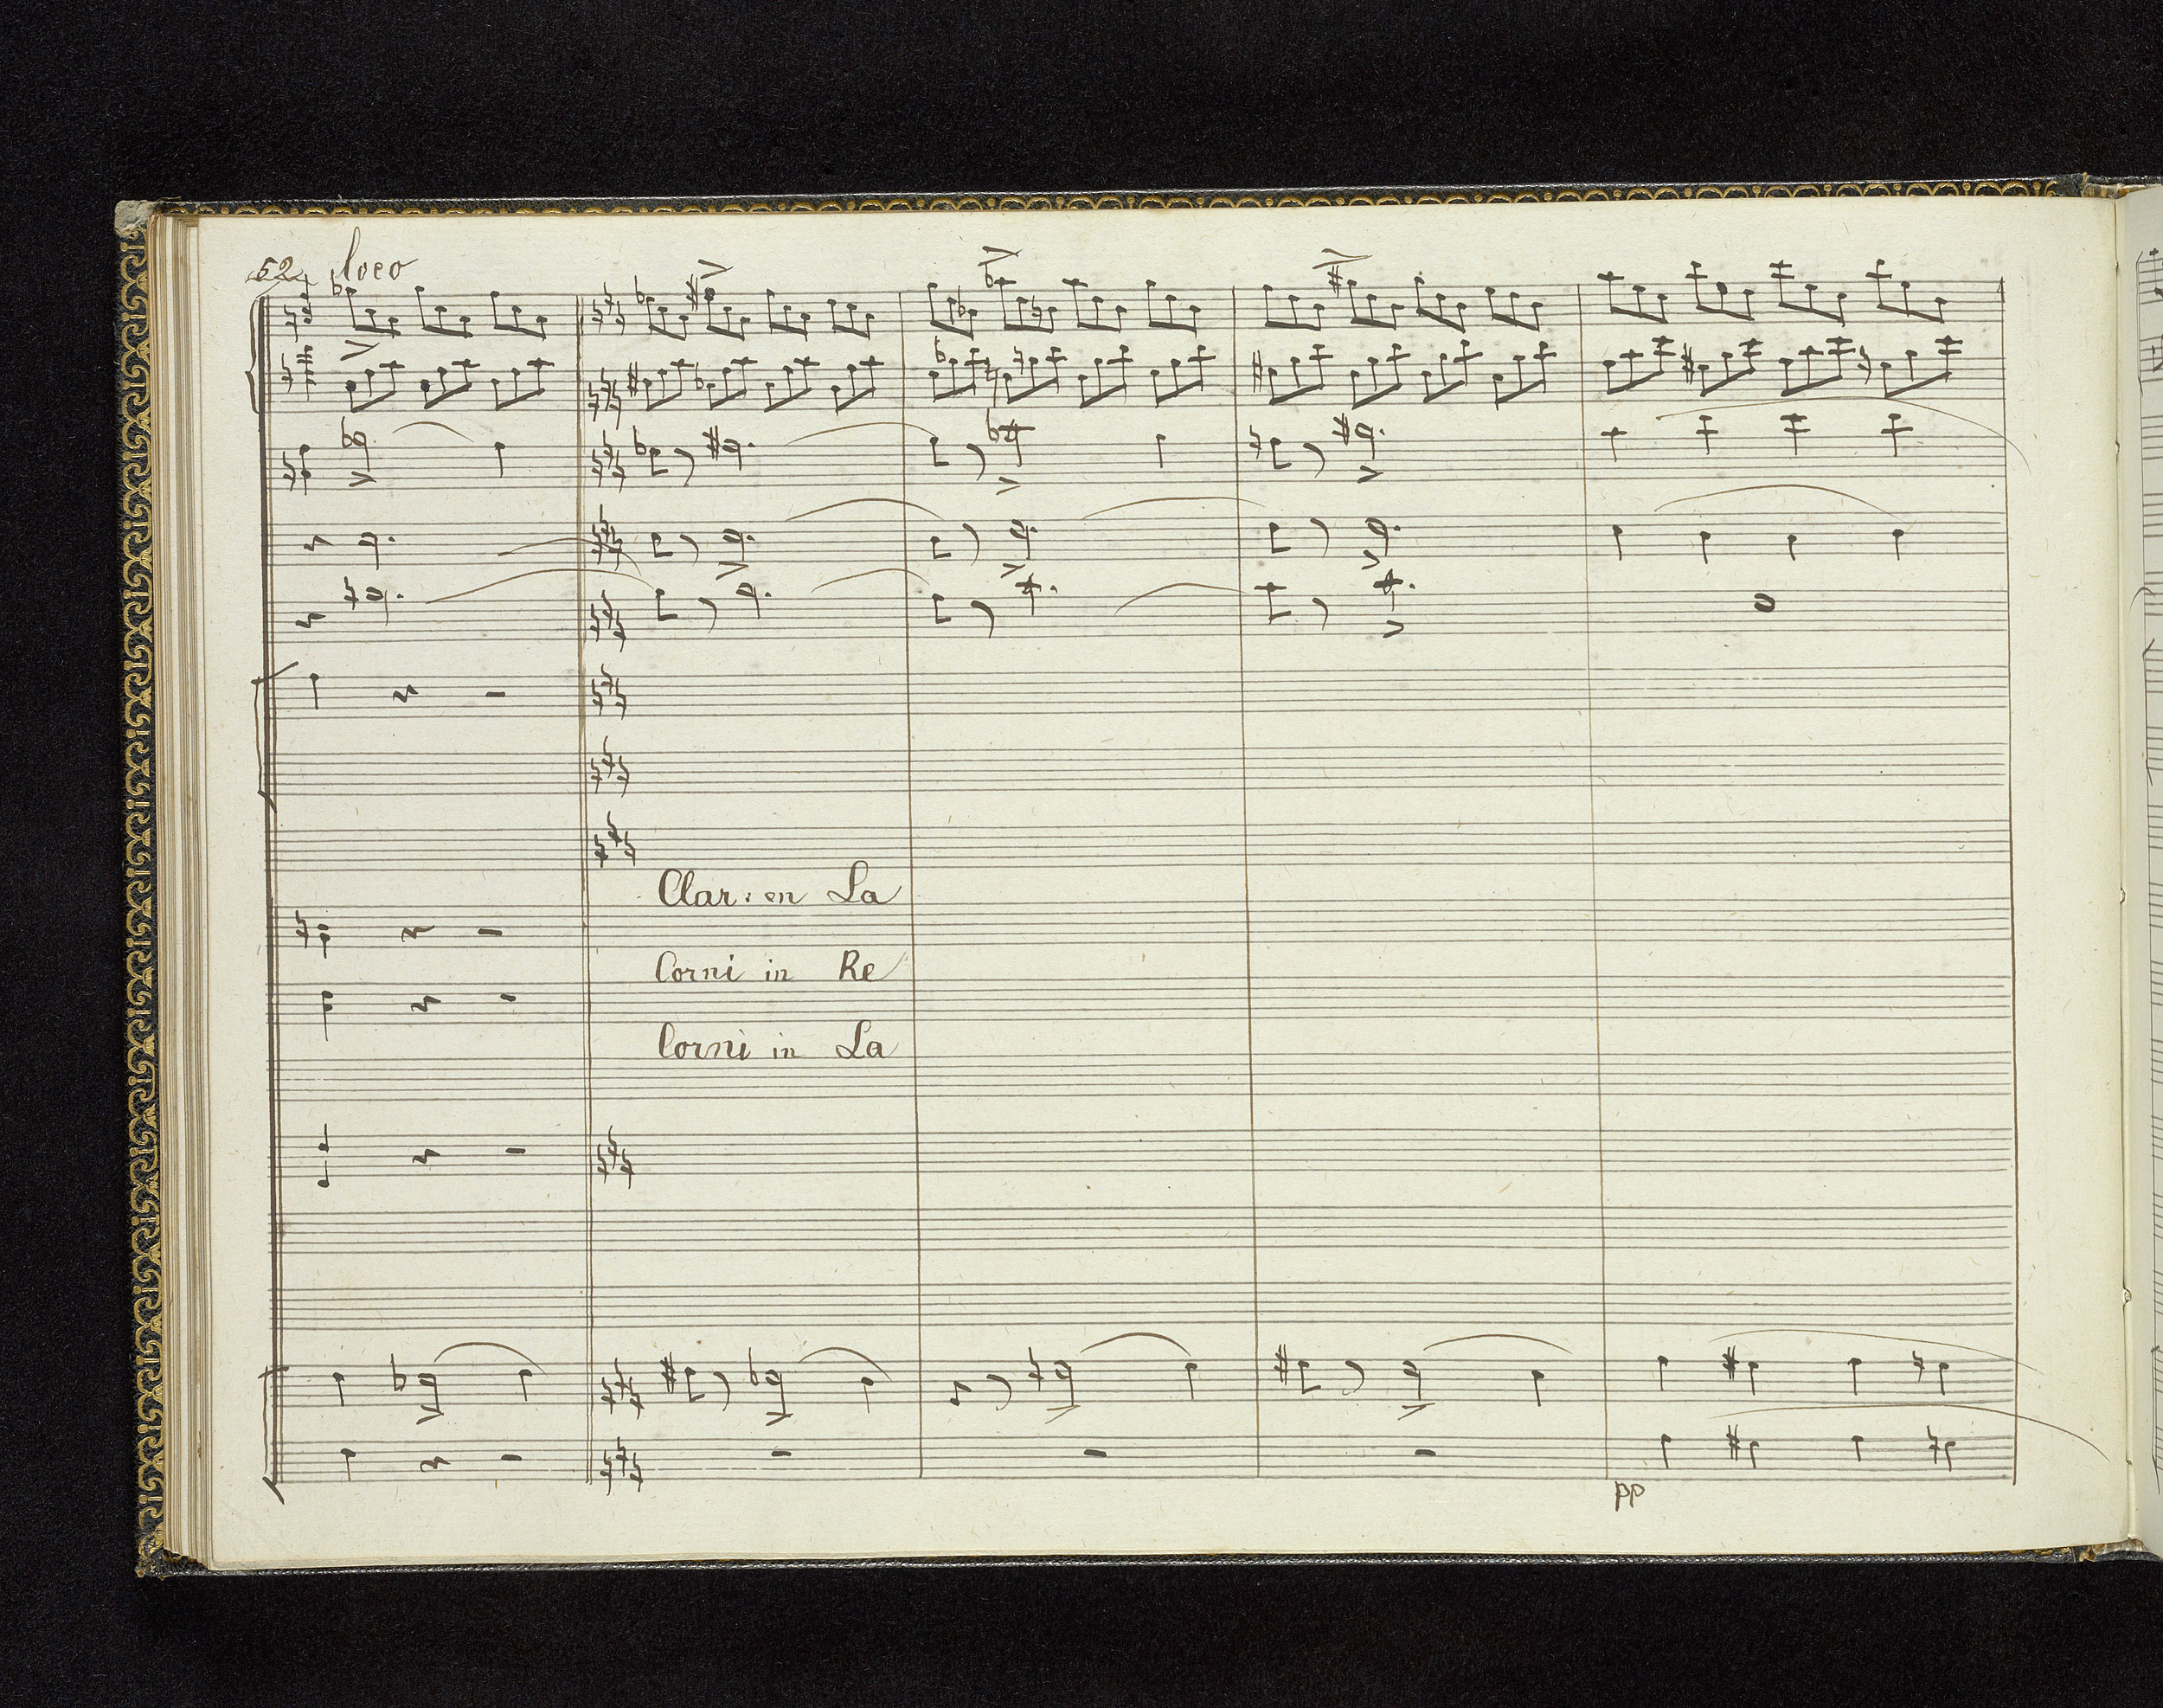 52 loco
Clar: en La
Corni in Re
Corni in La
pp